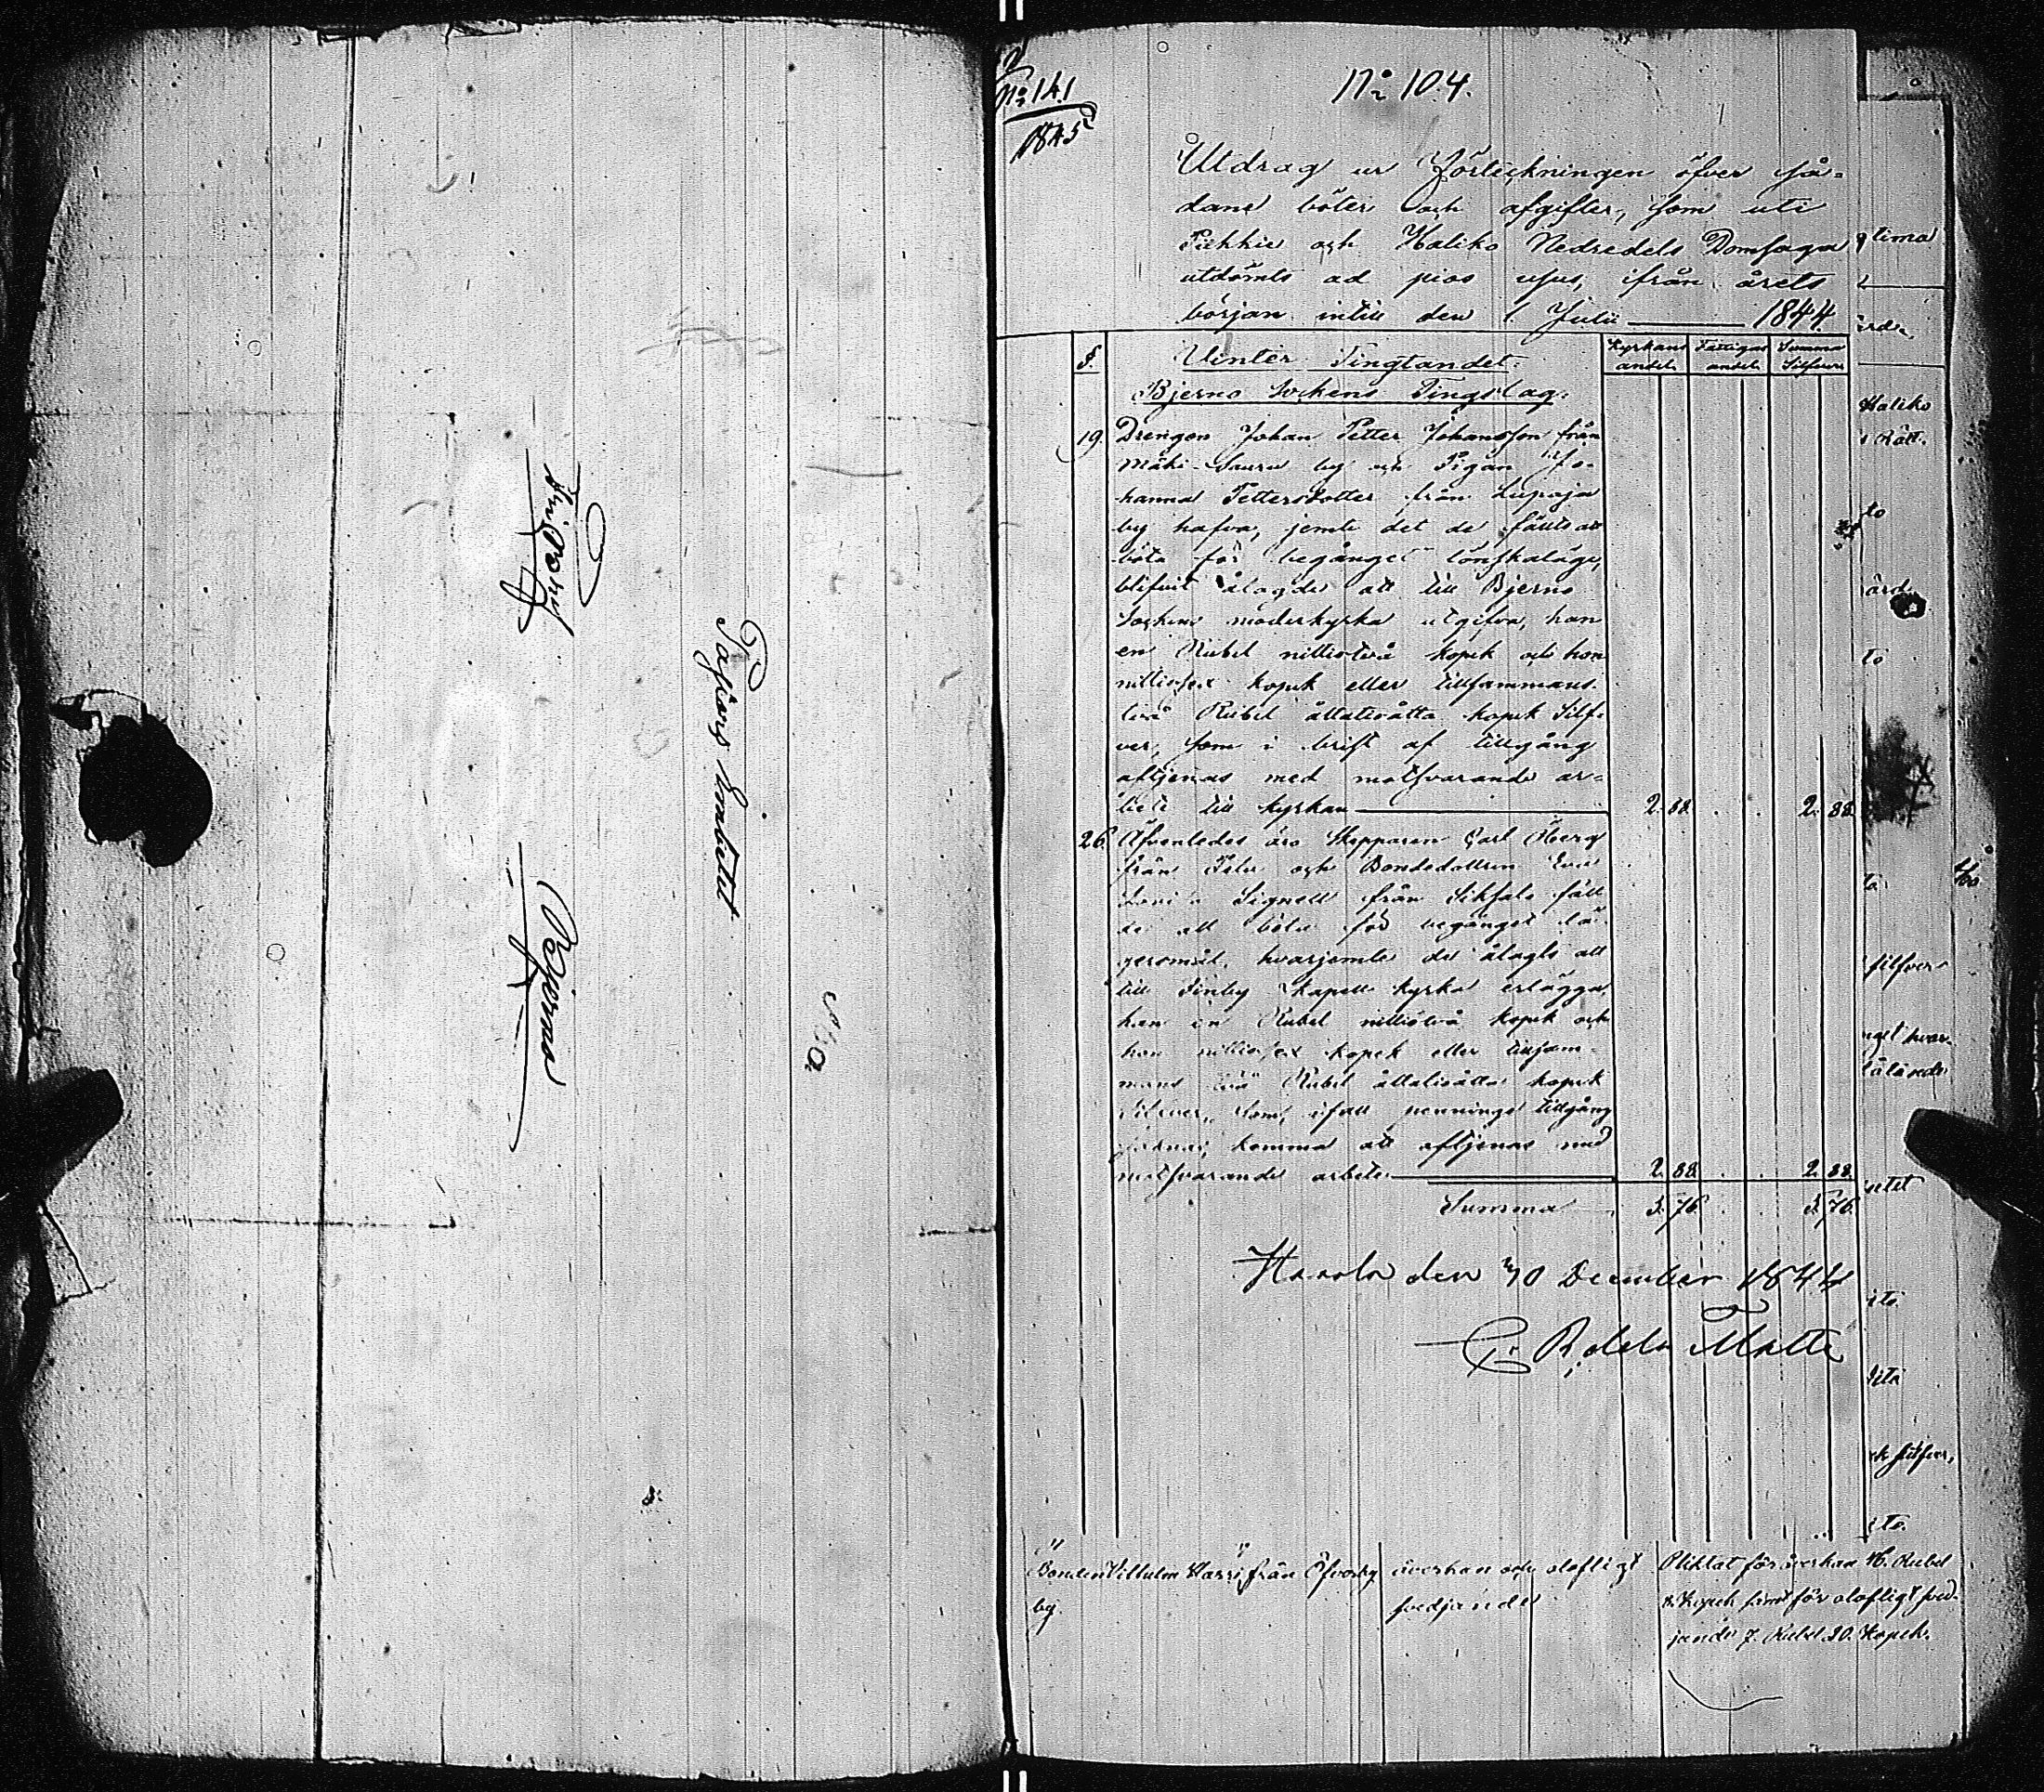 Pastors Embetet
Bjerno
No 141
1845
No 104.
Utdrag ur Förteckningen öfver så-
dane böter och afgifter, som uti
Piikkie och Haliko Nedredels Domsaga
utdömts ad pios usus, ifrån årets
början intill den 1 Julii 1844.
§. Vinter Tingtandet. Kyrkans andel. Fattigas andel. Summa Silfver
Bjerno Sockens Tingslag.
19. Drengen Johan Petter Johansson från
Mäki-Sauru by och Pigan Jo-
hanna Pettersdotter från Lupaja
by hafva, jemte det de fällts att
böta för begånget lönskaläge,
blifvit ålagde att till Bjerno
Sockens moderkyrka utgifva, han
en Rubel nittiotvå kopek och hon
nittiosex kopek eller tillsammans
två Rubel åttatioåtta kopek Silf-
ver, som i brist af tillgång
aftjenas med motsvarande ar-
bete till kyrkan 2. 88. 2. 88.
26. Äfvenledes äro Skepparen Carl Öberg
från och Bondedottren Eva
Signell från Siksalo fäll-
de att böta för begånget lä-
gersmål, hvarjemte de ålagts att
till Finby Kapells kyrka erlägga,
han en Rubel nittiotvå kopek och
hon nittiosex kopek eller tillsam-
mans två Rubel åttatioåtta kopek
Silfver, som, ifall pennings tillgång
saknas, komma att aftjenas med
motsvarande arbete 2. 88. 2. 88.
Summa 5. 76. 5. 76.
den 30 December 1844
Bonden Vilhelm Harri från Öfverby
by.
åverkan och olofligt
svedjande
Pliktat för åverkan 16. Rubel
kopek samt för olofligt sved-
jande 7. Rubel 20. Kopek.
Haliko
Rätt.
silfver